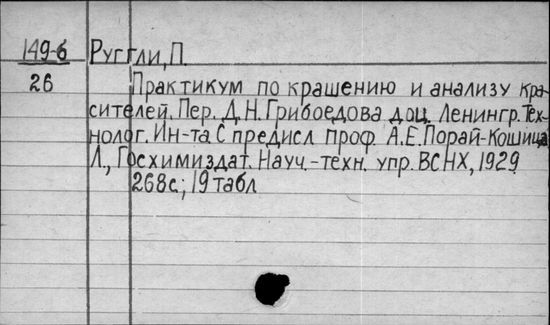 149-б Руггли, П.
26 Практикум по крашению и анализу кра-
сителей. Пер. Д.Н. Грибоедова доц. Ленингр. Тех-
нолог. Ин-та С предисл проф. А.Е. Порай-Кошица
Л., Госхимиздат. Науч.-техн. упр. ВСНХ, 1929
268с.; 19 табл